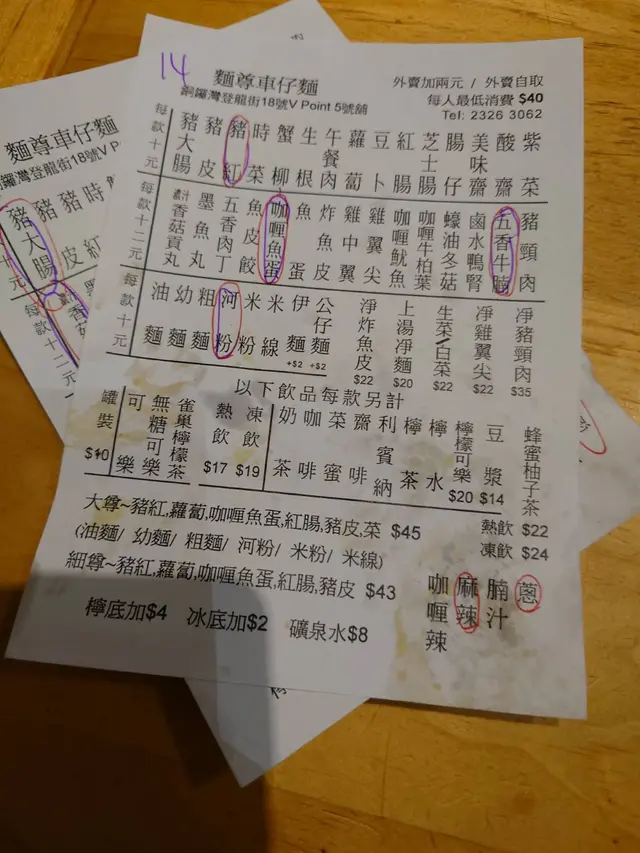 14
麵尊車仔麵
銅鑼灣登龍街18號V Point 5號舖
外賣加兩元 / 外賣自取
每人最低消費 $40
Tel: 2326 3062
每款十元
豬大腸
豬皮
豬紅
時菜
蟹柳
生根
午餐肉
蘿蔔
豆卜
紅腸
芝士腸
腸仔
美味齋
酸齋
紫菜
每款十二元
香菇貢丸
墨魚丸
五香肉丁
魚皮餃
咖喱魚蛋
魚蛋
炸魚皮
雞中翼
雞翼尖
咖喱魷魚
咖喱牛柏葉
蠔油冬菇
鹵水鴨腎
五香牛腩
豬頸肉
每款十元
油麵
幼麵
粗麵
河粉
米粉
米線
伊麵 +$2
公仔麵 +$2
淨炸魚皮 $22
上湯淨麵 $20
生菜/白菜 $22
淨雞翼尖 $22
淨豬頸肉 $35
以下飲品每款另計
罐裝 $10
可樂
無糖可樂
雀巢檸檬茶
熱飲 $17
凍飲 $19
奶茶
咖啡
菜蜜
齋啡
利賓納
檸茶
檸水
檸檬可樂 $20
豆漿 $14
蜂蜜柚子茶
熱飲 $22
凍飲 $24
大尊~豬紅,蘿蔔,咖喱魚蛋,紅腸,豬皮,菜 $45
(油麵/ 幼麵/ 粗麵/ 河粉/ 米粉/ 米線)
細尊~豬紅,蘿蔔,咖喱魚蛋,紅腸,豬皮 $43
檸底加$4 冰底加$2 礦泉水$8
咖喱辣
麻辣
腩汁
蔥
麵尊車仔麵
銅鑼灣登龍街18號V P
十元
豬大腸
豬皮
豬紅
時
每款十二元
香菇